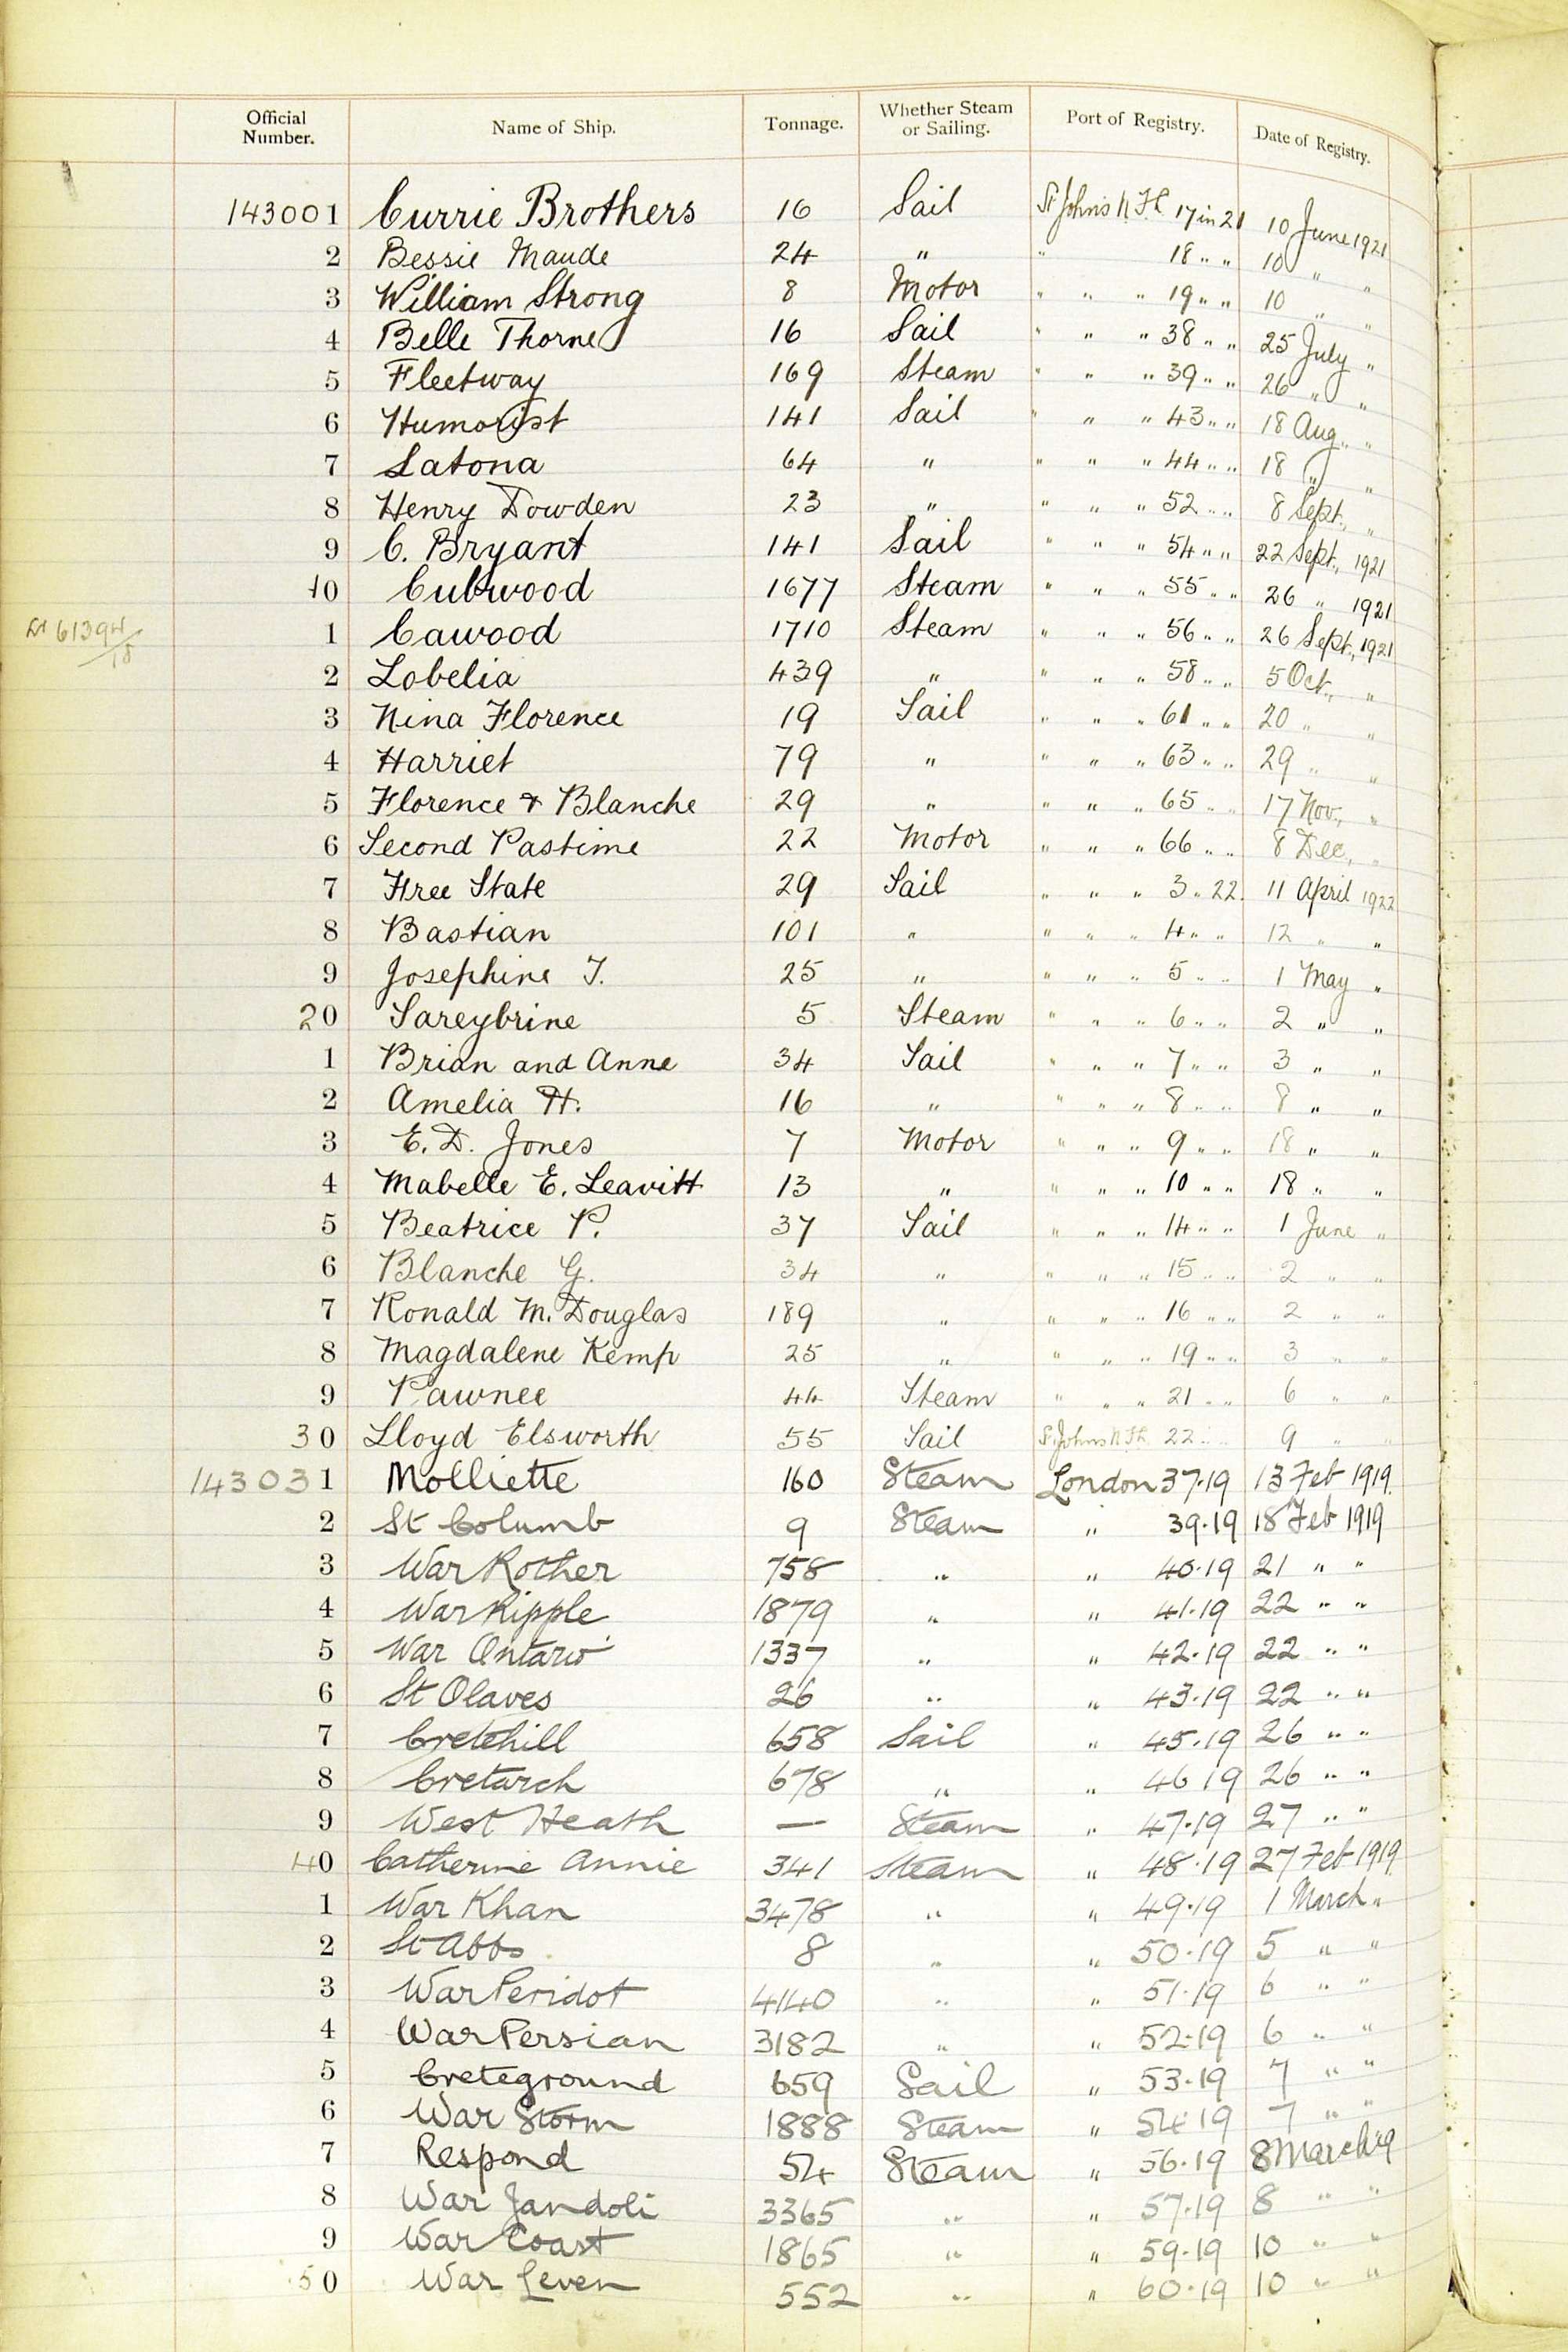 Official Number. Name of Ship. Tonnage. Whether Steam or Sailing. Port of Registry. Date of Registry.
143001 Currie Brothers 16 Sail St Johns N.F.L 17 in 21 10 June 1921
2 Bessie Maude 24 " " 18 " " 10 " "
3 William Strong 8 Motor " " " 19 " " 10 " "
4 Belle Thorne 16 Sail " " " 38 " " 25 July "
5 Fleetway 169 Steam " " " 39 " " 26 " "
6 Humorist 141 Sail " " " 43 " " 18 Aug. "
7 Latona 64 " " " " 44 " " 18 " "
8 Henry Dowden 23 " " " " 52 " " 8 Sept., "
9 C. Bryant 141 Sail " " " 54 " " 22 Sept., 1921
10 Cubwood 1677 Steam " " " 55 " " 26 " 1921
61394/18 1 Cawood 1710 Steam " " " 56 " " 26 Sept., 1921
2 Lobelia 439 " " " " 58 " " 5 Oct., "
3 Nina Florence 19 Sail " " " 61 " " 20 " "
4 Harriet 79 " " " " 63 " " 29 " "
5 Florence & Blanche 29 " " " " 65 " " 17 Nov., "
6 Second Pastime 22 Motor " " " 66 " " 8 Dec., "
7 Free State 29 Sail " " " 3 " 22. 11 April 1922
8 Bastian 101 " " " " 4 " " 12 " "
9 Josephine T. 25 " " " " 5 " " 1 May "
20 Sareybrine 5 Steam " " " 6 " " 2 " "
1 Brian and Anne 34 Sail " " " 7 " " 3 " "
2 Amelia H. 16 " " " " 8 " " 8 " "
3 E. D. Jones 7 Motor " " " 9 " " 18 " "
4 Mabelle E. Leavitt 13 " " " " 10 " " 18 " "
5 Beatrice P. 37 Sail " " " 14 " " 1 June "
6 Blanche G. 34 " " " " 15 " " 2 " "
7 Ronald M. Douglas 189 " " " " 16 " " 2 " "
8 Magdalene Kemp 25 " " " " 19 " " 3 " "
9 Pawnee 44 Steam " " " 21 " " 6 " "
30 Lloyd Elsworth 55 Sail St Johns N.F.L. 22 " " 9 " "
143031 Molliette 160 Steam London 37.19 13 Feb 1919.
2 St Columb 9 Steam " 39.19 18 Feb 1919
3 War Rother 758 " " 40.19 21 " "
4 War Ripple 1879 " " 41.19 22 " "
5 War Ontario 1337 " " 42.19 22 " "
6 St Olaves 26 " " 43.19 22 " "
7 Cretehill 658 Sail " 45.19 26 " "
8 Cretarch 678 " " 46 19 26 " "
9 West Heath — Steam " 47.19 27 " "
40 Catherine Annie 341 Steam " 48.19 27 Feb 1919
1 War Khan 3478 " " 49.19 1 March "
2 St Abbs 8 " " 50.19 5 " "
3 War Peridot 4140 " " 51.19 6 " "
4 War Persian 3182 " " 52.19 6 " "
5 Creteground 659 Sail " 53.19 7 " "
6 War Storm 1888 Steam " 54.19 7 " "
7 Respond 54 Steam " 56.19 8 March 19
8 War Jandoli 3365 " " 57.19 8 " "
9 War Coast 1865 " " 59.19 10 " "
50 War Leven 552 " " 60.19 10 " "